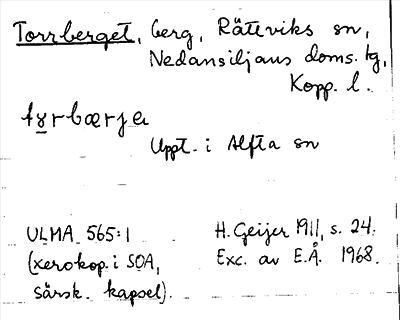 Torrberget, berg, Rättviks sn,
Nedansiljans doms. tg,
Kopp. l.
tɤrbærjɐ
Uppt. i Alfta sn
ULMA 565:1 H. Geijer 1911, s. 24.
(xerokop. i SOA, Exc. av E.Å. 1968.
särsk. kapsel).